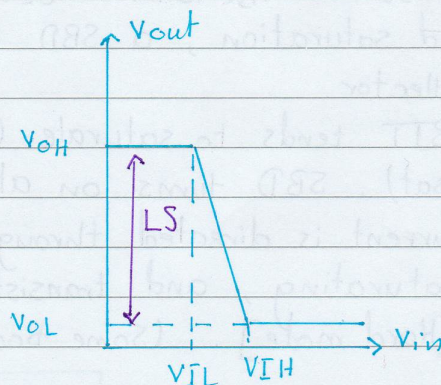 Vout
VOH
LS
VOL
Vin
VIL VIH